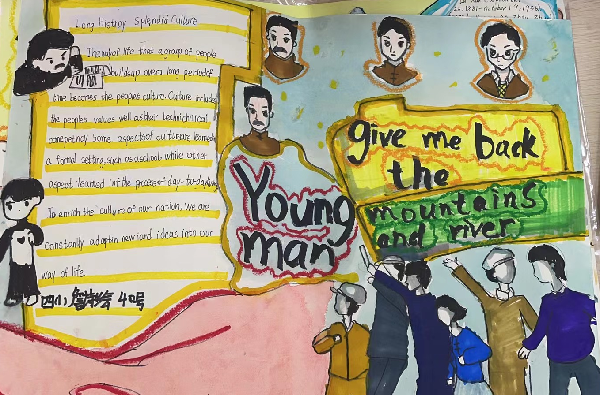 Long History Splendid Culture
The way of life that a group of people
buildup over a long period of
time becomes the people's culture. Culture includes
the people's values well as their technical
some aspects of culture are learned
a formal setting, such as a school, while other
aspend learned in the processof day-to-day
To enrith the culture of our nation. We are
constantly adoptin new and ideas into our
way of life.
40号
Young
man
give me back
the
mountains
and river